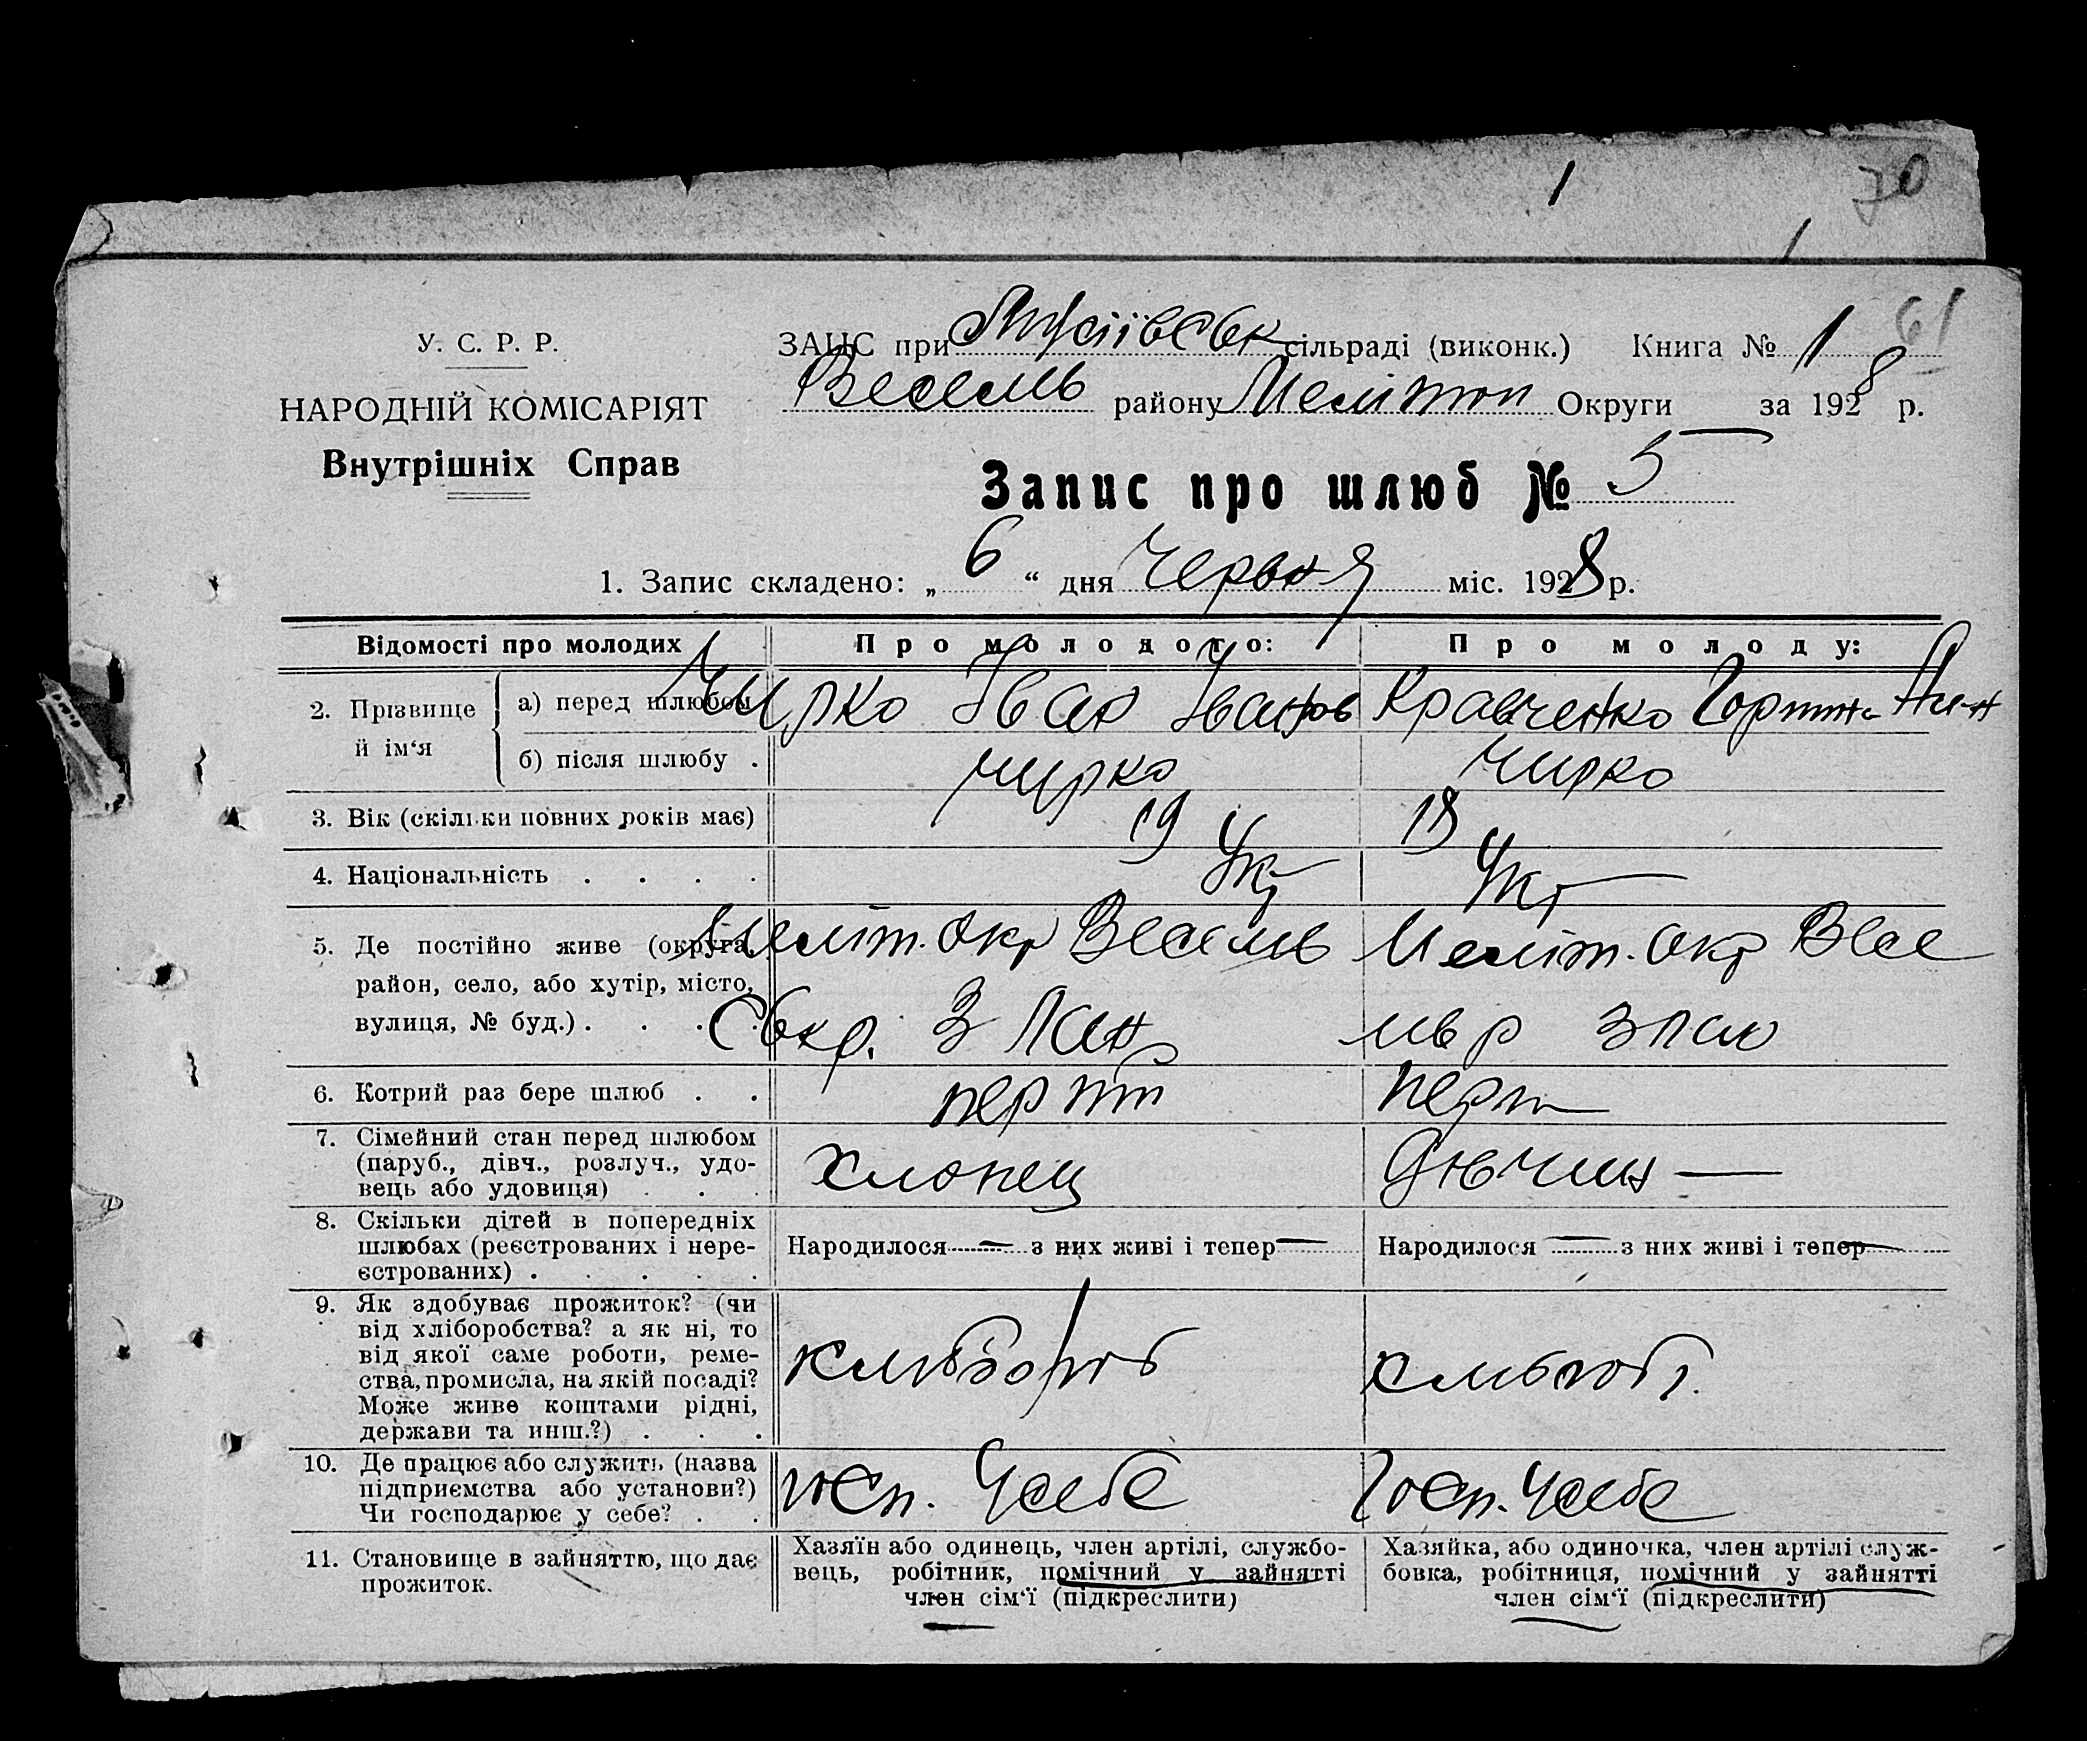 1
70
61
У. С. Р. Р.
НАРОДНІЙ КОМІСАРІЯТ
Внутрішніх Справ
ЗАЦС при сільраді (виконк.) Книга № 1
Веселів району Меліноп Округи за 1928 р.
Запис про шлюб № 5
1. Запис складено: „ 6 “ дня Червня міс. 1928 р.
Відомості про молодих
Про молодого:
Про молоду:
2. Прізвище й ім‘я
а) перед шлюбом
Чирко Іван Іванов
Кравченко
б) після шлюбу .
Чирко
Чирко
3. Вік (скільки повних років має)
19
18
4. Національність . . . .
Укр
Укр
5. Де постійно живе (округа,
район, село, або хутір, місто,
вулиця, № буд.) . . . .
Меліт. окр Веселів
Меліт. окр Весе
6. Котрий раз бере шлюб . .
перш
перш
7. Сімейний стан перед шлюбом
(паруб., дівч., розлуч., удо-
вець або удовиця) . . .
Хлопец
Дівчин
8. Скільки дітей в попередніх
шлюбах (реєстрованих і нере-
єстрованих) . . . . .
Народилося — з них живі і тепер —
Народилося — з них живі і тепер —
9. Як здобуває прожиток? (чи
від хліборобства? а як ні, то
від якої саме роботи, реме-
ства, промисла, на якій посаді?
Може живе коштами рідні,
держави та инш.?) . . .
10. Де працює або служить (назва
підприємства або установи?)
Чи господарює у себе? . .
госп. Усебе
Госп. Усебе
11. Становище в зайняттю, що дає
прожиток.
Хазяїн або одинець, член артілі, службо-
вець, робітник, помічний у зайнятті
член сім‘ї (підкреслити)
Хазяйка, або одиночка, член артілі служ-
бовка, робітниця, помічний у зайнятті
член сім‘ї (підкреслити)